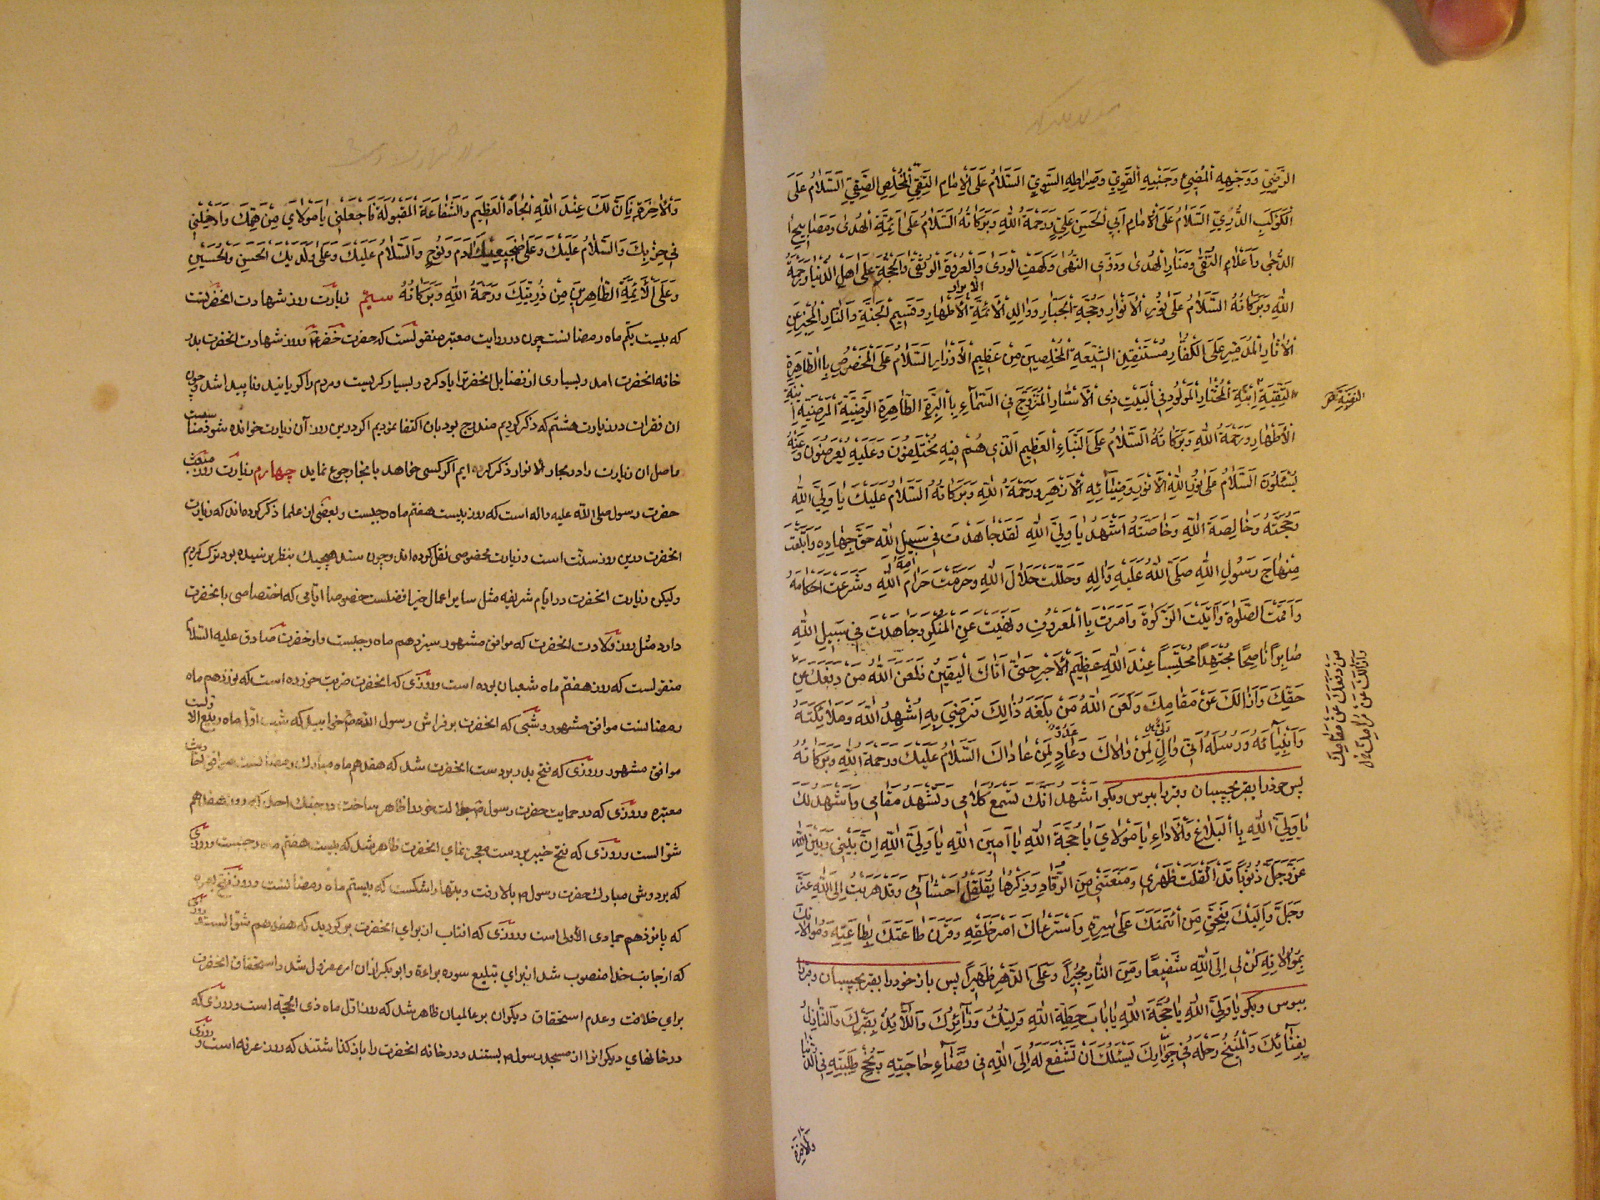 الرَّضِيِّ وَوَجْهِهِ الْمُضِيءِ وَجَنْبِهِ الْقَوِيِّ وَصِرَاطِهِ السَّوِيِّ السَّلَامُ عَلَى الْإِمَامِ التَّقِيِّ الْمُخْلِصِ الصَّفِيِّ السَّلَامُ عَلَى
الْكَوْكَبِ الدُّرِّيِّ السَّلَامُ عَلَى الْإِمَامِ أَبِي الْحَسَنِ عَلِيٍّ وَرَحْمَةُ اللهِ وَبَرَكَاتُهُ السَّلَامُ عَلَى أَئِمَّةِ الْهُدَى وَمَصَابِيحِ
الدُّجَى وَأَعْلَامِ التُّقَى وَمَنَارِ الْهُدَى وَذَوِي النُّهَى وَكَهْفِ الْوَرَى وَالْعُرْوَةِ الْوُثْقَى وَالْحُجَّةِ عَلَى أَهْلِ الدُّنْيَا وَرَحْمَةُ
اللهِ وَبَرَكَاتُهُ السَّلَامُ عَلَى نُورِ الْأَنْوَارِ وَحُجَّةِ الْجَبَّارِ وَوَالِدِ الْأَئِمَّةِ الْأَطْهَارِ وَقَسِيمِ الْجَنَّةِ وَالنَّارِ الْمُخْبِرِ عَنِ
الْآثَارِ الْمُدَمِّرِ عَلَى الْكُفَّارِ مُسْتَنْقِذِ الشِّيعَةِ الْمُخْلِصِينَ مِنْ عَظِيمِ الْأَوْزَارِ السَّلَامُ عَلَى الْمَخْصُوصِ بِالطَّاهِرَةِ
التَّقِيَّةِ ابْنَةِ الْمُخْتَارِ الْمَوْلُودِ فِي الْبَيْتِ ذِي الْأَسْتَارِ الْمُزَوَّجِ فِي السَّمَاءِ بِالْبَرَّةِ الطَّاهِرَةِ الرَّضِيَّةِ الْمَرْضِيَّةِ
الْأَطْهَارِ وَرَحْمَةُ اللهِ وَبَرَكَاتُهُ السَّلَامُ عَلَى النَّبَاءِ الْعَظِيمِ الَّذِي هُمْ فِيهِ مُخْتَلِفُونَ وَعَلَيْهِ يُعْرَضُونَ وَعَنْهُ
يُسْئَلُونَ السَّلَامُ عَلَى نُورِ اللهِ الْأَنْوَرِ وَضِيَائِهِ الْأَزْهَرِ وَرَحْمَةُ اللهِ وَبَرَكَاتُهُ السَّلَامُ عَلَيْكَ يَا وَلِيَّ اللهِ
وَحُجَّتَهُ وَخَالِصَةَ اللهِ وَخَاصَّتَهُ أَشْهَدُ يَا وَلِيَّ اللهِ لَقَدْ جَاهَدْتَ فِي سَبِيلِ اللهِ حَقَّ جِهَادِهِ وَاتَّبَعْتَ
مِنْهَاجَ رَسُولِ اللهِ صَلَّى اللهُ عَلَيْهِ وَآلِهِ وَحَلَّلْتَ حَلَالَ اللهِ وَحَرَّمْتَ حَرَامَ اللهِ وَشَرَعْتَ أَحْكَامَهُ
وَأَقَمْتَ الصَّلَوٰةَ وَآتَيْتَ الزَّكَوٰةَ وَأَمَرْتَ بِالْمَعْرُوفِ وَنَهَيْتَ عَنِ الْمُنْكَرِ وَجَاهَدْتَ فِي سَبِيلِ اللهِ
صَابِرًا نَاصِحًا مُجْتَهِدًا مُحْتَسِبًا عِنْدَ اللهِ عَظِيمَ الْأَجْرِ حَتَّى أَتَاكَ الْيَقِينُ فَلَعَنَ اللهُ مَنْ دَفَعَكَ عَنْ
حَقِّكَ وَأَزَالَكَ عَنْ مَقَامِكَ وَلَعَنَ اللهُ مَنْ بَلَغَهُ ذَالِكَ فَرَضِيَ بِهِ أُشْهِدُ اللهَ وَمَلَائِكَتَهُ
وَأَنْبِيَاءَهُ وَرُسُلَهُ أَنِّي وَالٍ لِمَنْ وَالَاكَ وَعَادٍ لِمَنْ عَادَاكَ السَّلَامُ عَلَيْكَ وَرَحْمَةُ اللهِ وَبَرَكَاتُهُ
پس خود را بقبر بچسبان و قبر را ببوس و بگو أَشْهَدُ أَنَّكَ تَسْمَعُ كَلَامِي وَتَشْهَدُ مَقَامِي وَأَشْهَدُ لَكَ
يَا وَلِيَّ اللهِ بِالْبَلَاغِ وَالْأَدَاءِ يَا مَوْلَايَ يَا حُجَّةَ اللهِ يَا أَمِينَ اللهِ يَا وَلِيَّ اللهِ إِنَّ بَيْنِي وَبَيْنَ اللهِ
عَزَّ وَجَلَّ ذُنُوبًا قَدْ أَثْقَلَتْ ظَهْرِي وَمَنَعَتْنِي مِنَ الرُّقَادِ وَذِكْرُهَا يُقَلْقِلُ أَحْشَائِي وَقَدْ هَرَبْتُ إِلَى اللهِ عَزَّ
وَجَلَّ وَإِلَيْكَ فَبِحَقِّ مَنِ ائْتَمَنَكَ عَلَى سِرِّهِ وَاسْتَرْعَاكَ أَمْرَ خَلْقِهِ وَقَرَنَ طَاعَتَكَ بِطَاعَتِهِ وَمُوَالَاتَكَ
بِمُوَالَاتِهِ كُنْ لِي إِلَى اللهِ شَفِيعًا وَمِنَ النَّارِ مُجِيرًا وَعَلَى الدَّهْرِ ظَهِيرًا پس باز خود را بقبر بچسبان و قبر را
ببوس و بگو يَا وَلِيَّ اللهِ يَا حُجَّةَ اللهِ يَا بَابَ حِطَّةِ اللهِ وَلِيُّكَ وَزَائِرُكَ وَاللَّائِذُ بِقَبْرِكَ وَالنَّازِلُ
بِفِنَائِكَ وَالْمُنِيخُ رَحْلَهُ فِي جِوَارِكَ يَسْئَلُكَ أَنْ تَشْفَعَ لَهُ إِلَى اللهِ فِي قَضَاءِ حَاجَتِهِ وَنُجْحِ طَلِبَتِهِ فِي الدُّنْيَا
والآخرة
وَالْآخِرَةِ فَإِنَّ لَكَ عِنْدَ اللهِ الْجَاهَ الْعَظِيمَ وَالشَّفَاعَةَ الْمَقْبُولَةَ فَاجْعَلْنِي يَا مَوْلَايَ مِنْ هَمِّكَ وَأَدْخِلْنِي
فِي حِزْبِكَ وَالسَّلَامُ عَلَيْكَ وَعَلَى ضَجِيعَيْكَ آدَمَ وَنُوحٍ وَالسَّلَامُ عَلَيْكَ وَعَلَى وَلَدَيْكَ الْحَسَنِ وَالْحُسَيْنِ
وَعَلَى الْأَئِمَّةِ الطَّاهِرِينَ مِنْ ذُرِّيَّتِكَ وَرَحْمَةُ اللهِ وَبَرَكَاتُهُ سیّم زیارت روز شهادت آنحضرتست
که بیست یکم ماه رمضانست چون در روایت معتبره منقولست که حضرت خضر در روز شهادت آنحضرت بدر
خانه آنحضرت آمد و بسیاری از فضایل آنحضرت را یاد کرد و بسیار گریست و مردم را گریانید و ناپیدا شد و چون
آن فقرات در زیارت هشتم که ذکر کردیم مندرج بود بآن اکتفا نمودیم اگر در این روز آن زیارت خوانده شود مناسبست
ما اصل آن زیارت را در بحار الانوار ذکر کرده ایم اگر کسی خواهد بآنجا رجوع نماید چهارم زیارت روز مبعث
حضرت رسول صلی الله علیه و آله است که روز بیست هفتم ماه رجبست و بعضی از علما ذکر کرده اند که زیارت
آنحضرت درین روز سنّت است و زیارت مخصوصی نقل کرده اند و چون سند هیچیک بنظر نرسیده بود ترک کردیم
ولیکن زیارت آنحضرت در ایام شریفه مثل سایر اعمال خیر افضلست خصوصا ایّامی که اختصاصی بآنحضرت
دارد مثل روز ولادت آنحضرت که موافق مشهور سیزدهم ماه رجبست و از حضرت صادق علیه السلام
منقولست که روز هفتم ماه شعبان بوده است و روزی که آنحضرت ضربت خورده است که نوزدهم ماه
رمضانست موافق مشهور و شبی که آنحضرت بر فراش رسول الله خوابید که شب اوّل ماه ربیع الاولست
موافق مشهور و روزی که فتح بدر بر دست آنحضرت شد که هفدهم ماه مبارک رمضانست موافق
معتبره و روزی که در حمایت حضرت رسول جلالت خود را ظاهر ساخت در جنگ احد که روز هفدهم
شوّالست و روزی که فتح خیبر بر دست معجز نمای آنحضرت ظاهر شد که بیست هفتم ماه رجبست و روزی
که بر دوش مبارک حضرت رسول بالا رفت و بتها را شکست که بیستم ماه رمضانست و روز فتح بصره
که پانزدهم جمادی الاولی است و روزی که آفتاب از برای آنحضرت برگردید که هفدهم شوّالست و روزی
که از جانب خدا منصوب شد از برای تبلیغ سوره براءة و ابو بکر از آن امر معزول شد و استحقاق آنحضرت
برای خلافت و عدم استحقاق دیگران بر عالمیان ظاهر شد که روز اوّل ماه ذی الحجّه است و روزی که
در خانهای دیگران را از مسجد رسول بستند و در خانه آنحضرت را باز گذاشتند که روز عرفه است و روزی